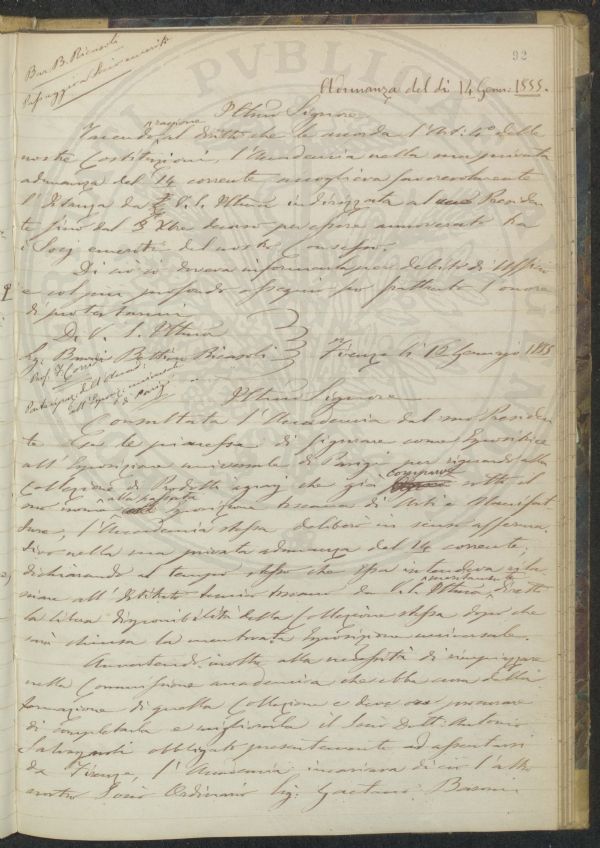 92
Bar. B. Ricasoli
Passaggio a Socio emerito
Adunanza del dì 14 Genn: 1855.
Illmo Signore
Facendo ragione al dritto che le accorda l'Art: 4° delle
nostre Costituzioni, l'Accademia nella sua privata
adunanza del 14 corrente accoglieva favorevolmente
l'Istanza da V. S. Illma indirizzata al Presiden
te fino dal 3 Xbre decorso per essere annoverato tra
i Socj emeriti del nostro Consesso.
Di ciò io doveva informarla per debito di Uffizio
e col più profondo ossequio ho frattanto l'onore
di protestarmi
D. V. S. Illma
Sig. Barone Bettino Ricasoli
Firenze li 16 Gennajo 1855
Prof. F. Corridi
Partecipaz. dell'Accad:
all'Esposiz: universale
di Parigi
Illmo Signore
Consultata l'Accademia dal suo Presiden
te se le piacesse di figurare come Espositrice
all'Esposizione universale di Parigi per riguardo alla
Collezione di Prodotti agrarj che già comparve sotto il
suo nome nella passata Esposizione toscana di Arti e Manifat
ture, l'Accademia stessa deliberò in senso afferma
tivo nella sua privata adunanza del 14 corrente,
dichiarando al tempo stesso che essa intendeva rila
sciare all'Istituto tecnico toscano da V. S. Illma diretto
la libera disponibilità della Collezione stessa dopo che
sarà chiusa la mentovata Esposizione universale.
Avvertendo inoltre alla necessità di rimpiazzare
nella Commissione accademica che ebbe cura della
formazione di quella Collezione e deve ora procurare
di completarla e migliorarla il Socio Dott: Antonio
Salvagnoli obbligato presentemente ad assentarsi
da Firenze, l'Accademia incaricava di ciò l'altro
nostro Socio Ordinario Sig. Gaetano Baroni